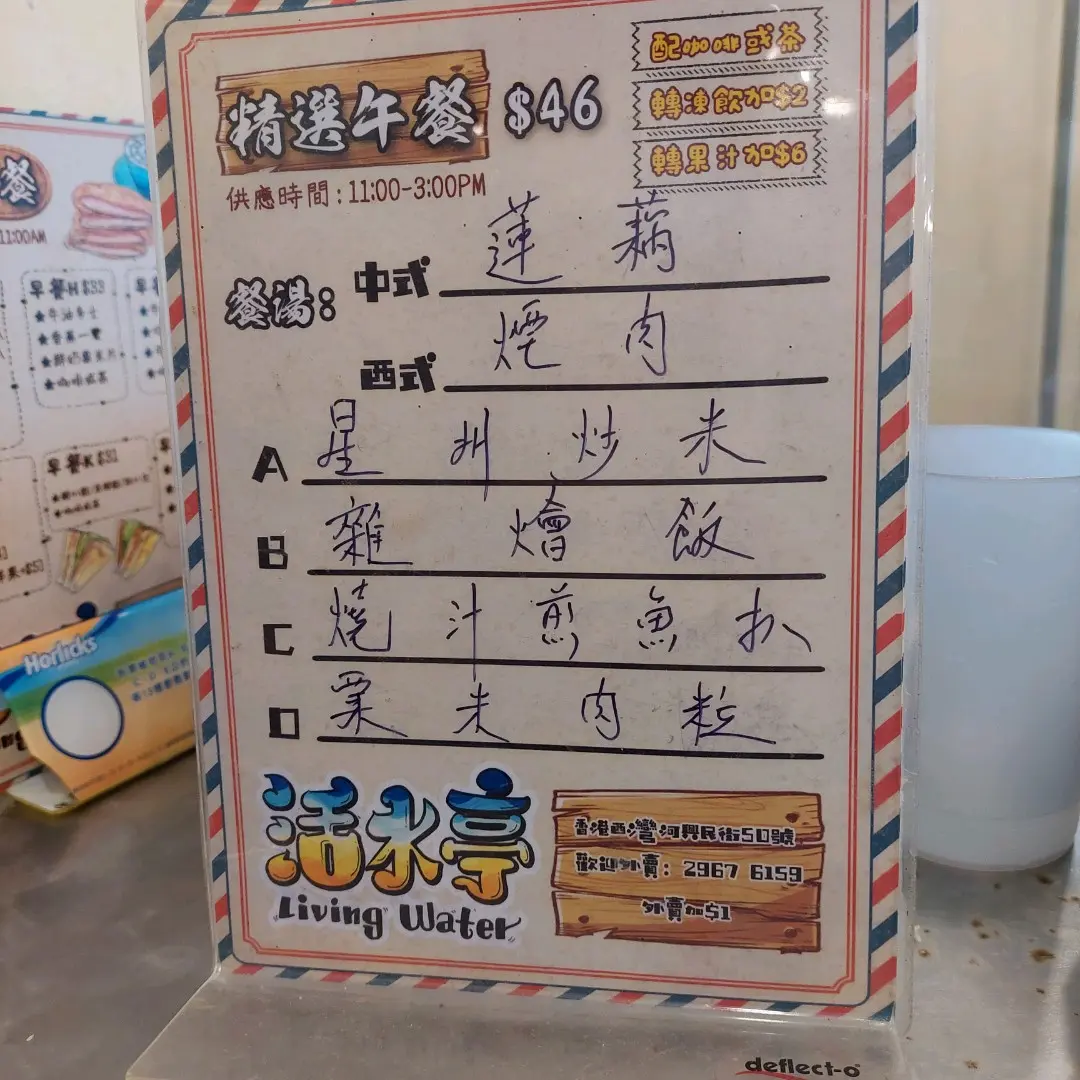 精選午餐 $46
配咖啡或茶
轉凍飲加$2
轉果汁加$6
供應時間：11:00-3:00PM
餐湯：
中式 蓮藕
西式 煙肉
A 星州炒米
B 雜燴飯
C 燒汁煎魚扒
D 粟米肉粒
活水亭
Living Water
香港西灣河興民街50號
歡迎外賣：2967 6159
外賣加$1
deflect-o
餐
11:00AM
早餐H $33
★牛油多士
早餐K $31
Horlicks